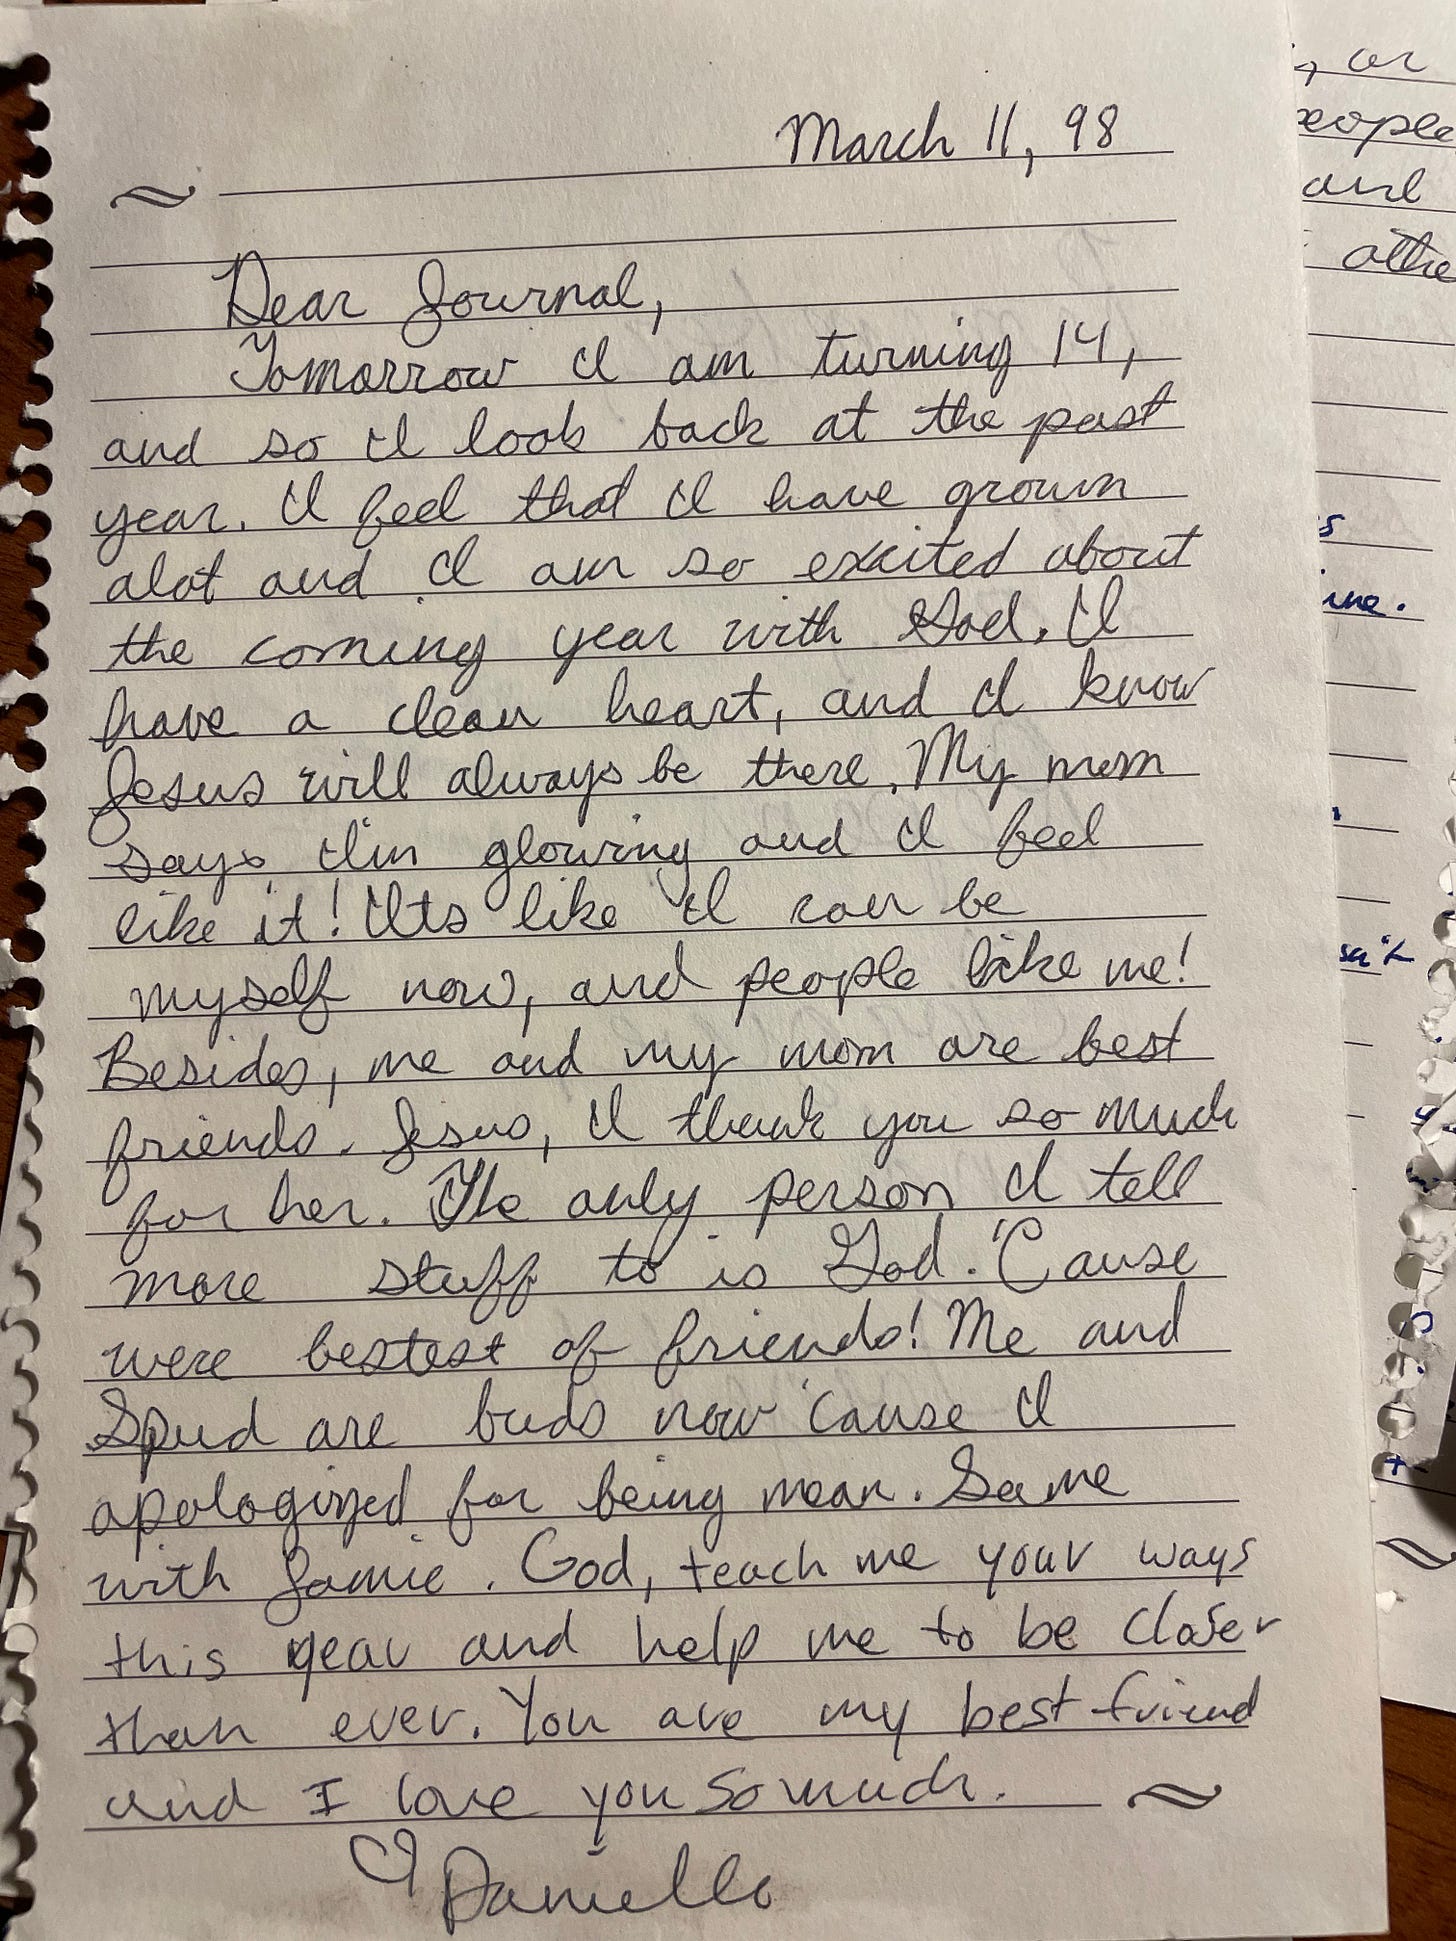 March 11, 98
Dear Journal,
Tomorrow I am turning 14,
and so I look back at the past
year. I feel that I have grown
alot and I am so excited about
the coming year with God. I
have a clean heart, and I know
Jesus will always be there. My mom
says I'm glowing and I feel
like it! Its like I can be
myself now, and people like me!
Besides, me and my mom are best
friends. Jesus, I thank you so much
for her. The only person I tell
more stuff to is God. 'Cause
were bestest of friends! Me and
Spud are buds now 'cause I
apologized for being mean. Same
with Jamie. God, teach me your ways
this year and help me to be closer
than ever. You are my best friend
and I love you so much.
♡ Danielle
, or
people
and
othe
s
ine.